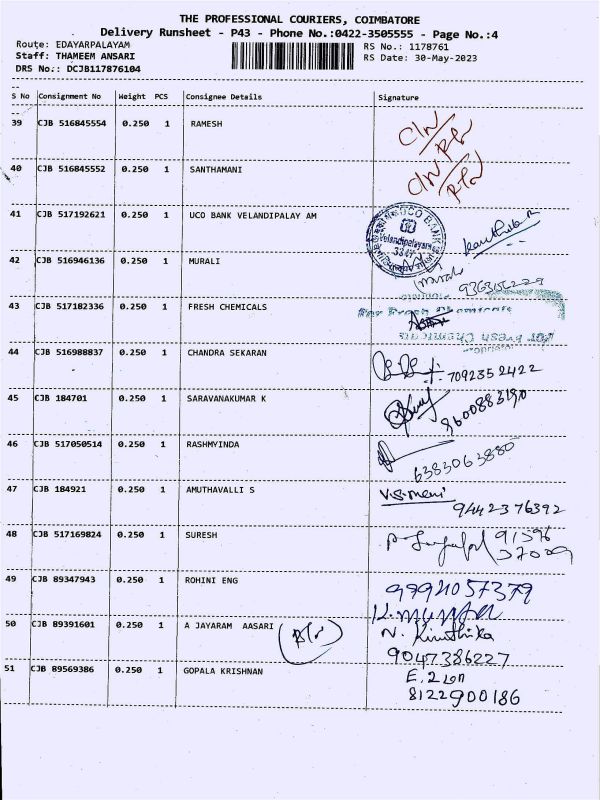 THE PROFESSIONAL COURIERS, COIMBATORE
Delivery Runsheet - P43 - Phone No.:0422-3505555 - Page No.:4
Route: EDAYARPALAYAM
RS No.: 1178761
Staff: THAMEEM ANSARI
RS Date: 30-May-2023
DRS No.: DCJB117876104
S No Consignment No Weight PCS Consignee Details Signature
39 CJB 516845554 0.250 1 RAMESH
40 CJB 516845552 0.250 1 SANTHAMANI
41 CJB 517192621 0.250 1 UCO BANK VELANDIPALAY AM
UCO BANK
Velandipalayam
42 CJB 516946136 0.250 1 MURALI
9363156229
43 CJB 517182336 0.250 1 FRESH CHEMICALS
For Fresh Chemicals
44 CJB 516988837 0.250 1 CHANDRA SEKARAN
7092352422
45 CJB 184701 0.250 1 SARAVANAKUMAR K
9600883190
46 CJB 517050514 0.250 1 RASHMVINDA
6383063880
47 CJB 184921 0.250 1 AMUTHAVALLI S
V.S.Mani
9442376392
48 CJB 517169824 0.250 1 SURESH
91596
37009
49 CJB 89347943 0.250 1 ROHINI ENG
9994057379
50 CJB 89391601 0.250 1 A JAYARAM AASARI N. Kiruthika
9047386227
51 CJB 89569386 0.250 1 GOPALA KRISHNAN
8122900186